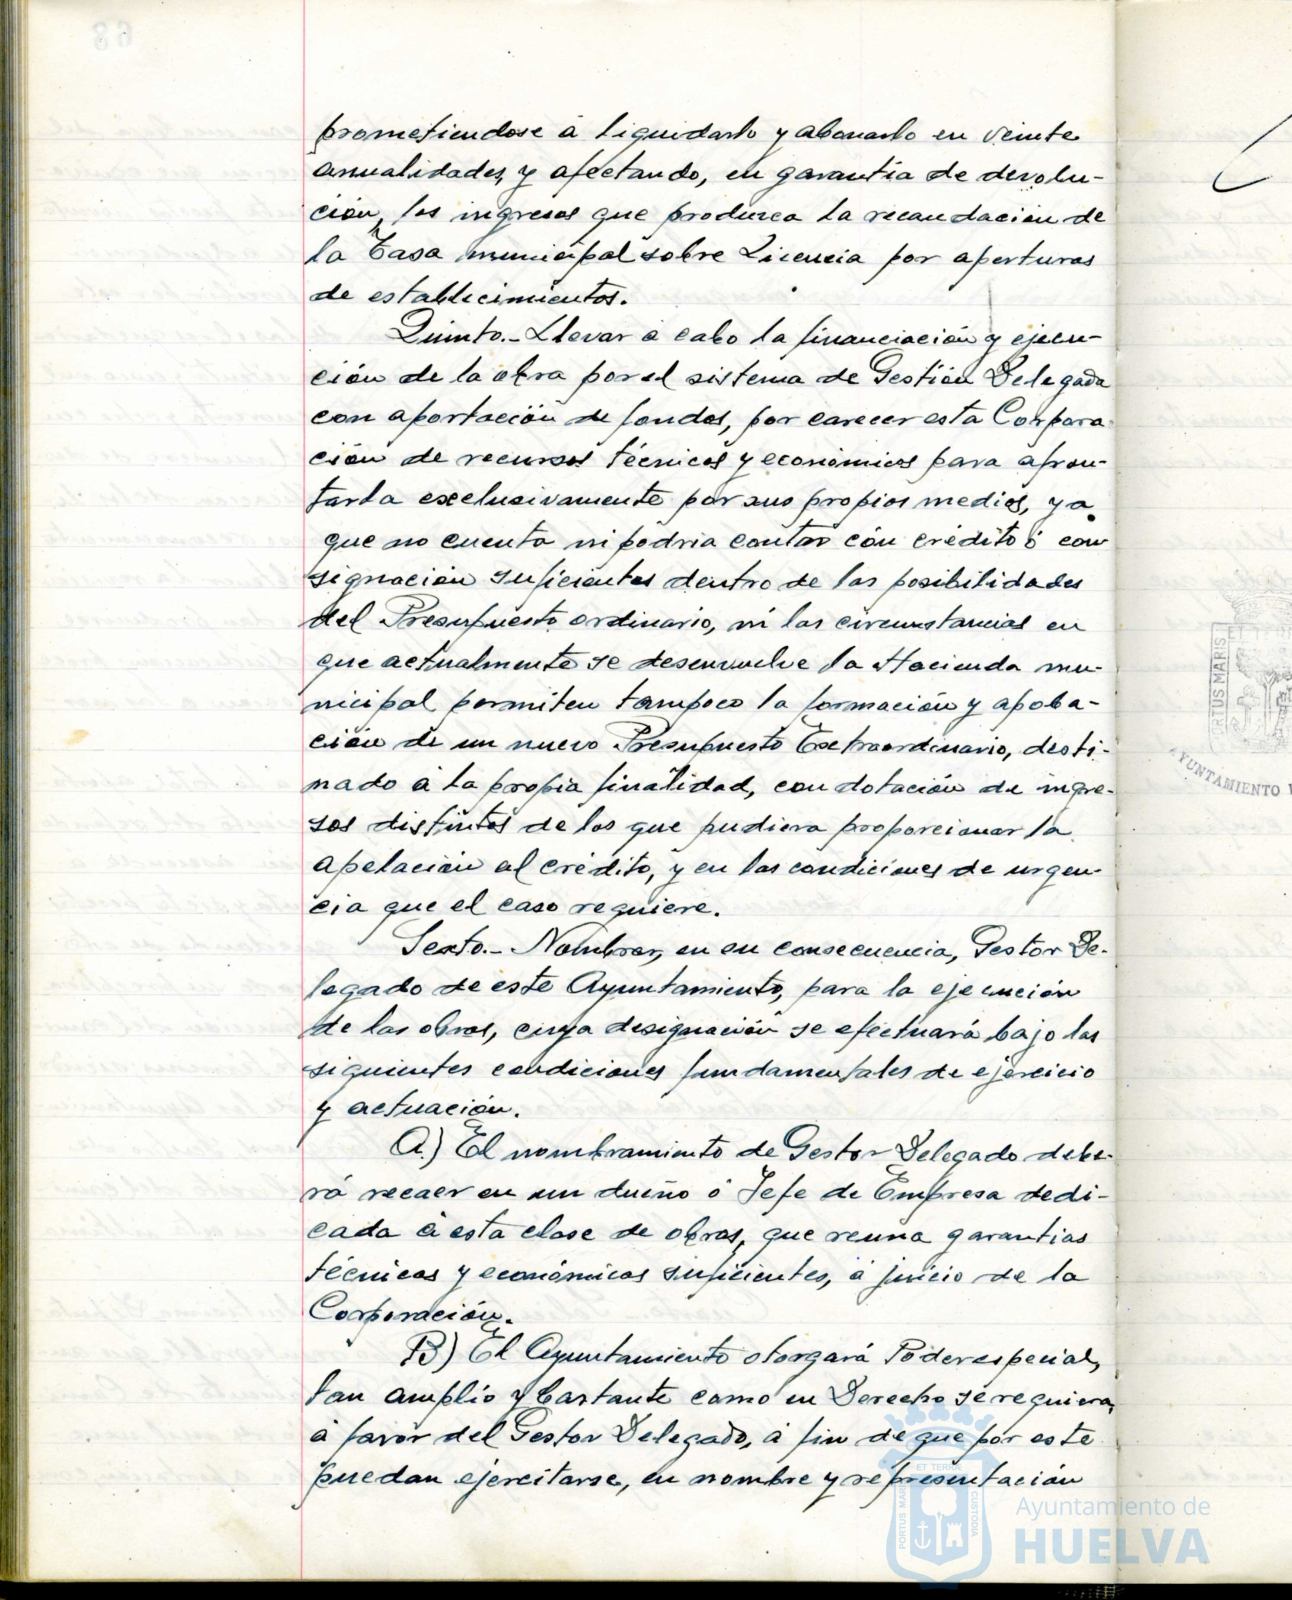 prometiendose á liquidarlo y abonarlo en veinte
anualidades, y afectando, en garantía de devolu-
ción, los ingresos que produzca la recaudación de
la Tasa municipal sobre Licencia por aperturas
de establecimientos.
Quinto.- Llevar á cabo la financiación y ejecu-
ción de la obra por el sistema de Gestión Delegada
con aportación de fondos, por carecer esta Corpora
ción de recursos técnicos y económicos para afron-
tarla exclusivamente por sus propios medios, ya
que no cuenta ni podria contar con crédito ó con
signación suficientes dentro de las posibilidades
del Presupuesto ordinario, ni las circunstancias en
que actualmente se desenvuelve la Hacienda mu-
nicipal permiten tampoco la formación y apoba-
ción de un nuevo Presupuesto Extraordinario, desti-
nado á la propia finalidad, con dotación de ingre-
sos distintos de los que pudiera proporcionar la
apelación al crédito, y en las condiciones de urgen-
cia que el caso requiere.
Sexto.- Nombrar, en su consecuencia, Gestor De-
legado de este Ayuntamiento, para la ejecución
de las obras, cuya designación se efectuará bajo las
siguientes condiciones fundamentales de ejercicio
y actuación.
A.) El nombramiento de Gestor Delegado debe-
rá recaer en un dueño ó Jefe de Empresa dedi-
cada á esta clase de obras, que reuna garantias
técnicas y económicas suficientes, á juicio de la
Corporación.
B) El Ayuntamiento otorgará Poder especial,
tan amplio y bastante como en Derecho se requiera,
á favor del Gestor Delegado, á fin de que por este
puedan ejercitarse, en nombre y representación
RTUS MARIS
ET TE
AYUNTAMIENTO
PORTUS MARIS ET TERRAE CUSTODIA
Ayuntamiento de
HUELVA